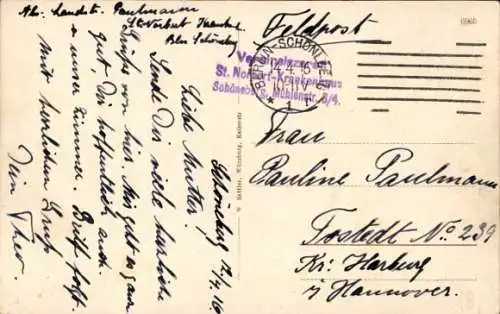 Abs: Landst. Paulmann
St. Norbert Krankenh.
Bln Schöneberg
Feldpost
BERLIN-SCHÖNEBERG
14.4.16
1
St. Norbert-Krankenhaus
Schöneberg, Mühlenstr. 3/4.
Frau
Pauline Paulmann
Tostedt No 239
Kr: Harburg
n/ Hannover.
Schöneberg 12/4. 16.
Liebe Mutter!
Sende Dir viele herzliche
Grüße von hier. Mir geht es ganz
gut, Dir hoffentlich auch.
unser Zimmer. Brief folgt.
Mit herzlichen Gruß
Dein Theo.